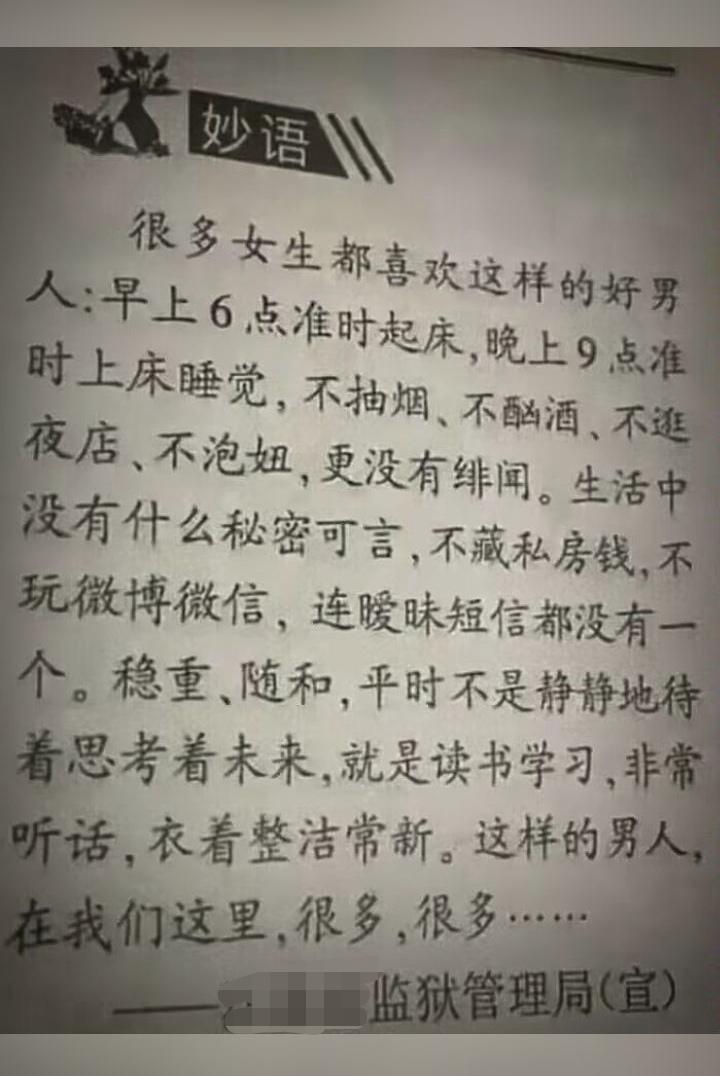 妙语
很多女生都喜欢这样的好男
人:早上6点准时起床,晚上9点准
时上床睡觉,不抽烟、不酗酒、不逛
夜店、不泡妞,更没有绯闻。生活中
没有什么秘密可言,不藏私房钱,不
玩微博微信,连暧昧短信都没有一
个。稳重、随和,平时不是静静地待
着思考着未来,就是读书学习,非常
听话,衣着整洁常新。这样的男人,
在我们这里,很多,很多……
——监狱管理局(宣)